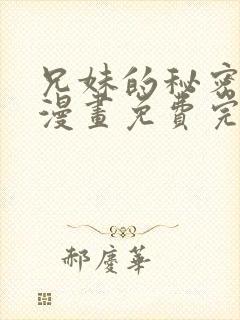 兄妹的秘密
漫畫免費完
郝慶華